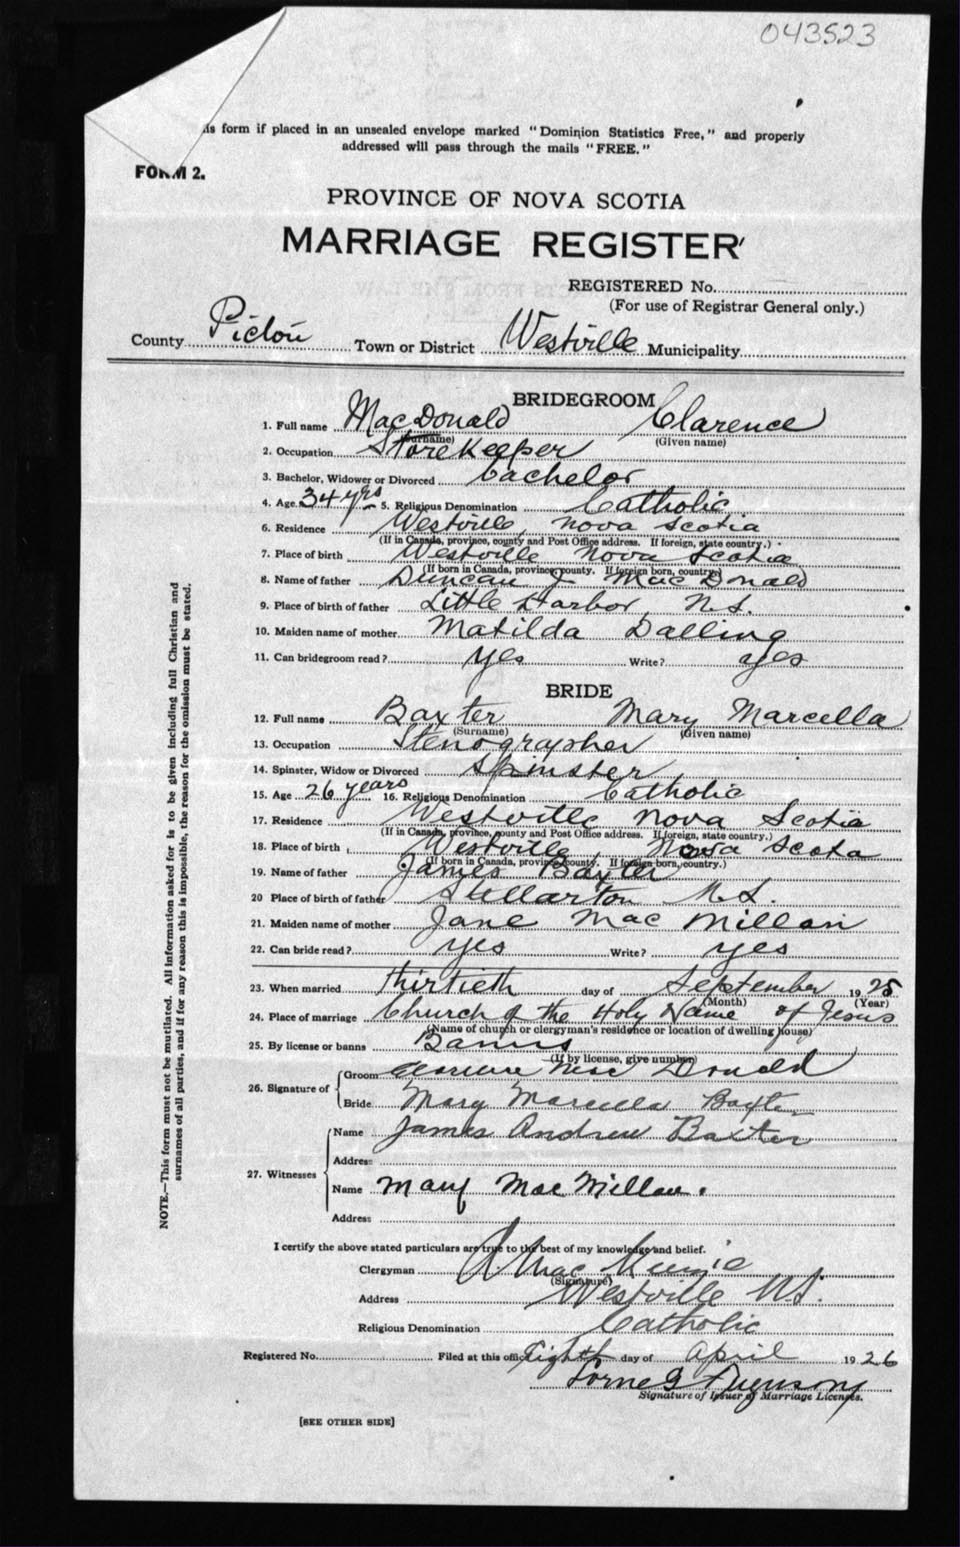 043523
is form if placed in an unsealed envelope marked "Dominion Statistics Free," and properly
addressed will pass through the mails "FREE."
FORM 2.
PROVINCE OF NOVA SCOTIA
MARRIAGE REGISTER
REGISTERED No.
(For use of Registrar General only.)
County Pictou Town or District Westville Municipality
BRIDEGROOM
1. Full name MacDonald Clarence
(Surname) (Given name)
2. Occupation Storekeeper
3. Bachelor, Widower or Divorced bachelor
4. Age 34 yrs 5. Religious Denomination Catholic
6. Residence Westville, Nova Scotia
(If in Canada, province, county and Post Office address. If foreign, state country.)
7. Place of birth Westville Nova Scotia
(If born in Canada, province, county. If foreign born, country.)
8. Name of father Duncan J MacDonald
9. Place of birth of father Little Harbor, N.S.
10. Maiden name of mother Matilda Dalling
11. Can bridegroom read? yes Write? yes
BRIDE
12. Full name Baxter Mary Marcella
(Surname) (Given name)
13. Occupation Stenographer
14. Spinster, Widow or Divorced Spinster
15. Age 26 years 16. Religious Denomination Catholic
17. Residence Westville Nova Scotia
(If in Canada, province, county and Post Office address. If foreign, state country.)
18. Place of birth Westville, Nova Scota
(If born in Canada, province, county. If foreign born, country.)
19. Name of father James Baxter
20 Place of birth of father Stellarton N.S.
21. Maiden name of mother Jane MacMillan
22. Can bride read? yes Write? yes
23. When married thirtieth day of September 1925
(Month) (Year)
24. Place of marriage Church of the Holy Name of Jesus
(Name of church or clergyman's residence or location of dwelling house)
25. By license or banns Banns
(If by license, give number)
26. Signature of Groom Clarence MacDonald
Bride Mary Marcella Baxter
27. Witnesses Name James Andrew Baxter
Address
Name Mary MacMillan.
Address
I certify the above stated particulars are true to the best of my knowledge and belief.
Clergyman MacKinnie
(Signature)
Address Westville N.S.
Religious Denomination Catholic
Registered No. Filed at this office Eighth day of April 1926
Lorne G Ferguson
Signature of Issuer of Marriage Licenses.
[SEE OTHER SIDE]
NOTE.—This form must not be mutilated. All information asked for is to be given including full Christian and
surnames of all parties, and if for any reason this is impossible, the reason for the omission must be stated.